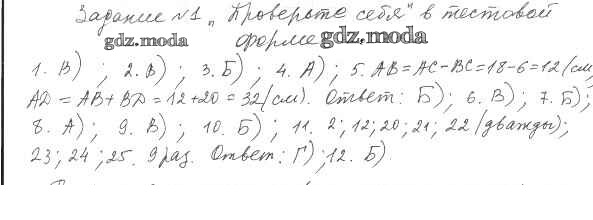 Задание №1 „Проверьте себя" в тестовой
gdz.moda форме gdz.moda
1. В) ; 2. В) ; 3. Б) ; 4. А) ; 5. AB = AC - BC = 18 - 6 = 12 (см)
AD = AB + BD = 12 + 20 = 32 (см). Ответ: Б); 6. В); 7. Б);
8. А); 9. В); 10. Б); 11. 2; 12; 20; 21; 22 (дважды);
23; 24; 25. 9 раз. Ответ: Г); 12. Б).